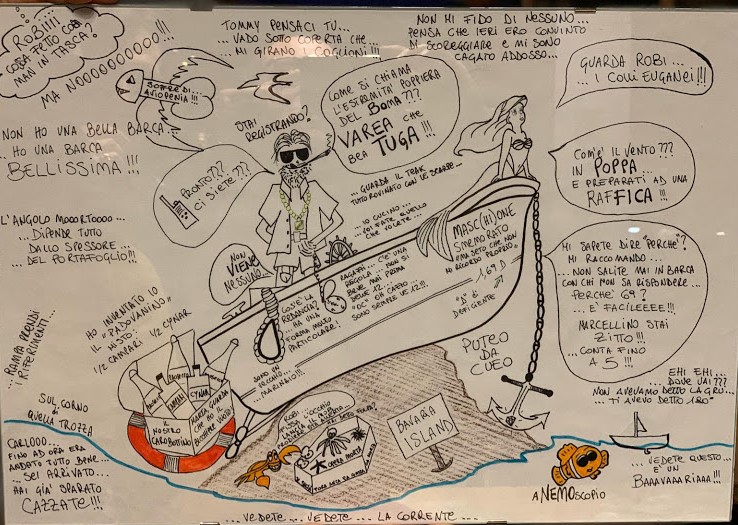 ROBI!!!!
COSA FETTO COA
MAN IN TASCA?
MA NOOOOOOOOOO!!!
TOMMY PENSACI TU...
...VADO SOTTO COPERTA CHE
...MI GIRANO I COGLIONI!!!
NON MI FIDO DI NESSUNO...
PENSA CHE IERI ERO CONVINTO
DI SCOREGGIARE E MI SONO
CAGATO ADDOSSO...
GUARDA ROBI...
...I COLLI EUGANEI!!!
SOFFRE DI...
AVIOPENIA!!!
NON HO UNA BELLA BARCA...
...HO UNA BARCA
BELLISSIMA!!!
STAI
REGISTRANDO?
COME SI CHIAMA
L'ESTREMITÀ POPPIERA
DEL BOMA???
VAREA CHE
BEA TUGA!!!
PRONTO???
CI SIETE???
COM'È IL VENTO???
IN POPPA...
E PREPARATI AD UNA
RAFFICA!!!
...GUARDA IL TEAK
TUTTO ROVINATO CON LE SCARPE...
...IO CUCINO...
VOI FATE QUELLO
CHE VOLETE...
L'ANGOLO MOOORTOOOO...
...DIPENDE TUTTO
DALLO SPESSORE...
...DEL PORTAFOGLIO!!!
NON
VIENE
NESSUNO...
MASC(H)IONE
SMEMORATO
CHE NON
MI RICORDO PROPRIO
1,69 D
"D" È
DEFICIENTE
RAGAZZI... C'È UNA
REGOLA... NON SI
BEVE MAI PRIMA
DELLE 12...
"OC" OH CAPO
SONO SEMPRE LE 12!!!
COS'È LA
REDANCIA?
...HA UNA
FORMA MOLTO
PARTICOLARE!
SONO UN
VECCHIO...
MARINAIO!!!
MI SAPETE DIRE "PERCHÈ"?
MI RACCOMANDO...
...NON SALITE MAI IN BARCA
CON CHI NON SA RISPONDERE...
PERCHÈ 69?
...È FACILEEEE!!!
MARCELLINO STAI
ZITTO!!!
...CONTA FINO
A 5!!!
HO INVENTATO IO
IL "PADOVANINO"
IL MISTO!
1/2 CAMPARI 1/2 CYNAR
...RAMPA PRENDI
RIFERIMENTI...
PUTEO
DA
CUEO
CAMPARI
CYNAR
IL
NOSTRO
CAROBOTTINO
EHI EHI...
...DOVE VAI???
NON AVEVAMO DETTO LA GRU...
...TI AVEVO DETTO 180°
SUL CORNO
DI
QUELLA TROZZA
CARLOOO...
FINO AD ORA ERA
ANDATO TUTTO BENE...
...SEI ARRIVATO...
HAI GIÀ SPARATO
CAZZATE!!!
ROBI
OPERA MORTA
BAVARA
ISLAND
ANEMOSCOPIO
...VEDETE QUESTO...
È UN
BAAVAAARIAAA!!!
...VEDETE...VEDETE...LA CORRENTE...